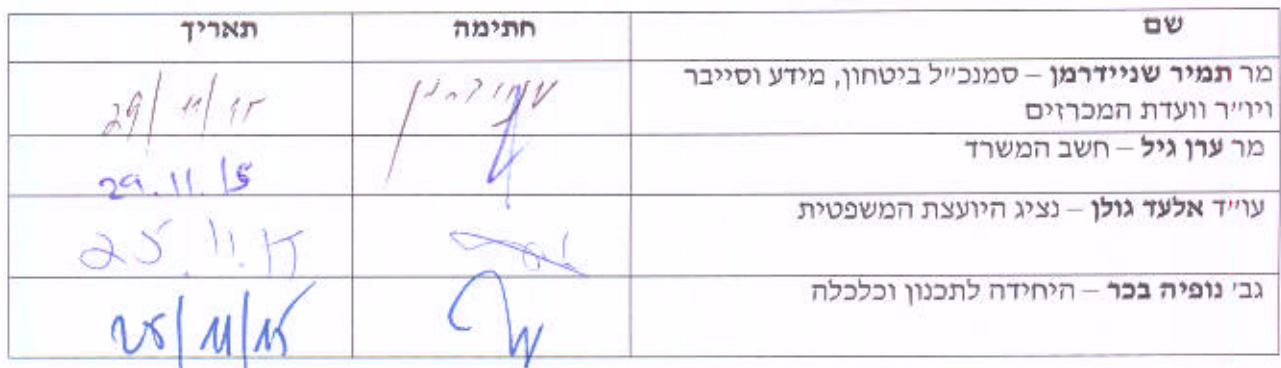 שם חתימה תאריך
מר תמיר שניידרמן – סמנכ״ל ביטחון, מידע וסייבר
ויו״ר וועדת המכרזים 29/11/15
מר ערן גיל – חשב המשרד 29.11.15
עו״ד אלעד גולן – נציג היועצת המשפטית 25.11.15
גב׳ נופיה בכר – היחידה לתכנון וכלכלה 25/11/15